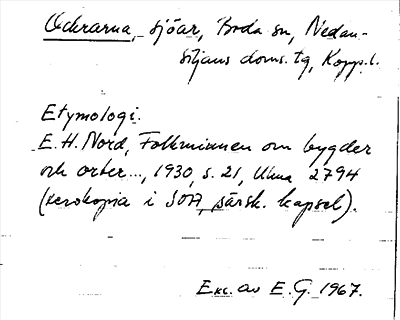 Ockrarna, sjöar, Boda sn, Nedan-
siljans doms. tg, Kopp. l.
Etymologi.
E. H. Nord, Folkminnen om bygder
och orter..., 1930, s. 21, Uma 2794
(xerokopia i SOA, särsk. kapsel).
Exc. av E. G. 1967.